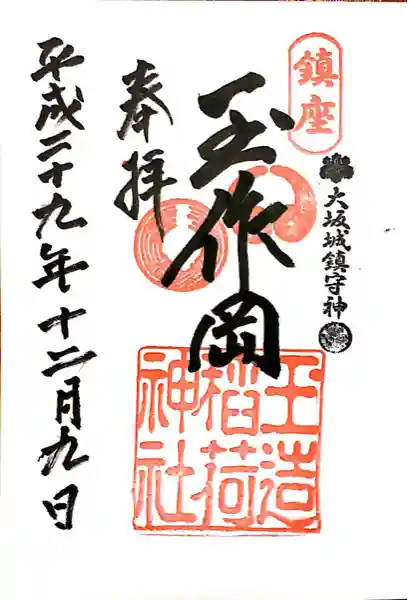 鎮座
大坂城鎮守神
玉作岡
奉拝
玉造稲荷神社
平成二十九年十二月九日